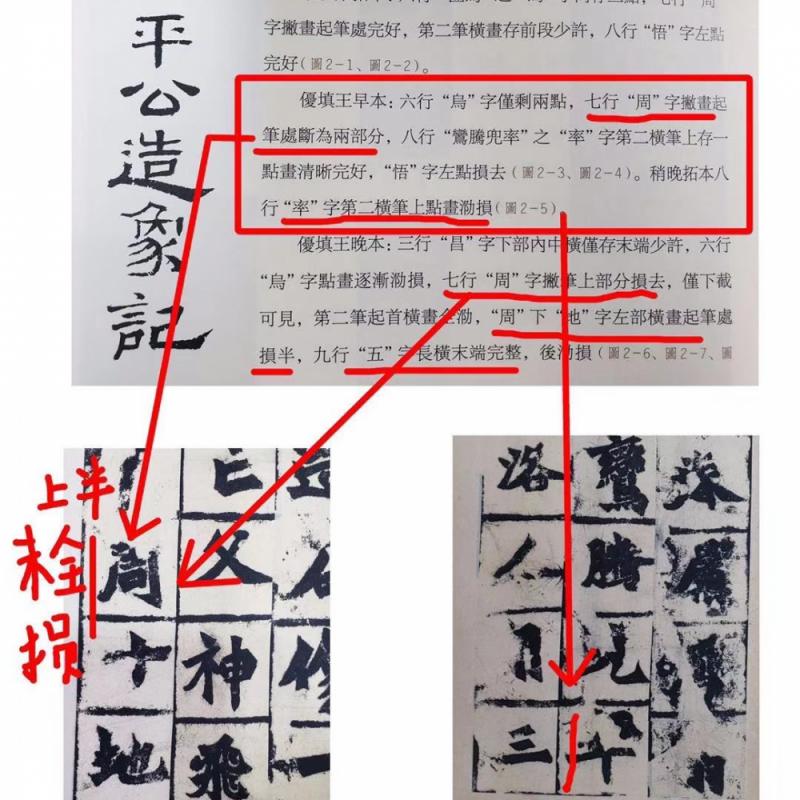 平公造象記
字撇畫起筆處完好，第二筆橫畫存前段少許，八行“悟”字左點
完好（圖2-1、圖2-2）。
優填王早本：六行“烏”字僅剩兩點，七行“周”字撇畫起
筆處斷為兩部分，八行“鸞騰兜率”之“率”字第二橫筆上存一
點畫清晰完好，“悟”字左點損去（圖2-3、圖2-4）。稍晚拓本八
行“率”字第二橫筆上點畫泐損（圖2-5）。
優填王晚本：三行“昌”字下部內中橫僅存末端少許，六行
“烏”字點畫逐漸泐損，七行“周”字撇筆上部分損去，僅下截
可見，第二筆起首橫畫全泐，“周”下“地”字左部橫畫起筆處
損半，九行“五”字長橫末端完整，後泐損（圖2-6、圖2-7、圖
上半
栓损
父神飛
周十地
鸞騰
洛人三